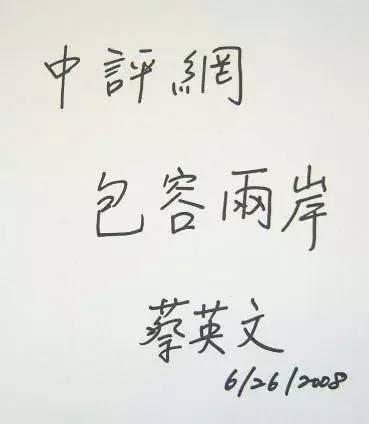 中評網
包容兩岸
蔡英文
6/26/2008